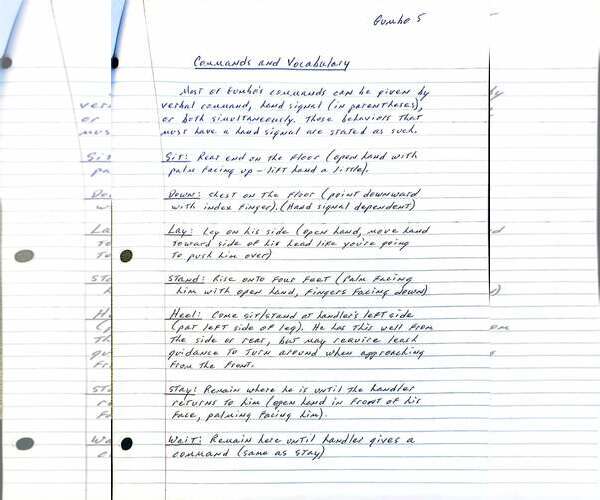 Gumbo 5
Commands and Vocabulary
Most of Gumbo's commands can be given by
verbal command, hand signal (in parentheses),
or both simultaneously. Those behaviors that
must have a hand signal are stated as such.
Sit: Rear end on the floor (open hand with
palm facing up - lift hand a little).
Down: chest on the floor (point downward
with index finger). (Hand signal dependent)
Lay: Lay on his side (open hand, move hand
toward side of his head like you're going
to push him over)
Stand: Rise onto four feet (palm facing
him with open hand, fingers facing down)
Heel: Come sit/stand at handler's left side
(pat left side of leg). He has this well from
the side or rear, but may require leash
guidance to turn around when approaching
from the front.
Stay: Remain where he is until the handler
returns to him (open hand in front of his
face, palming facing him).
Wait: Remain here until handler gives a
command (same as stay)